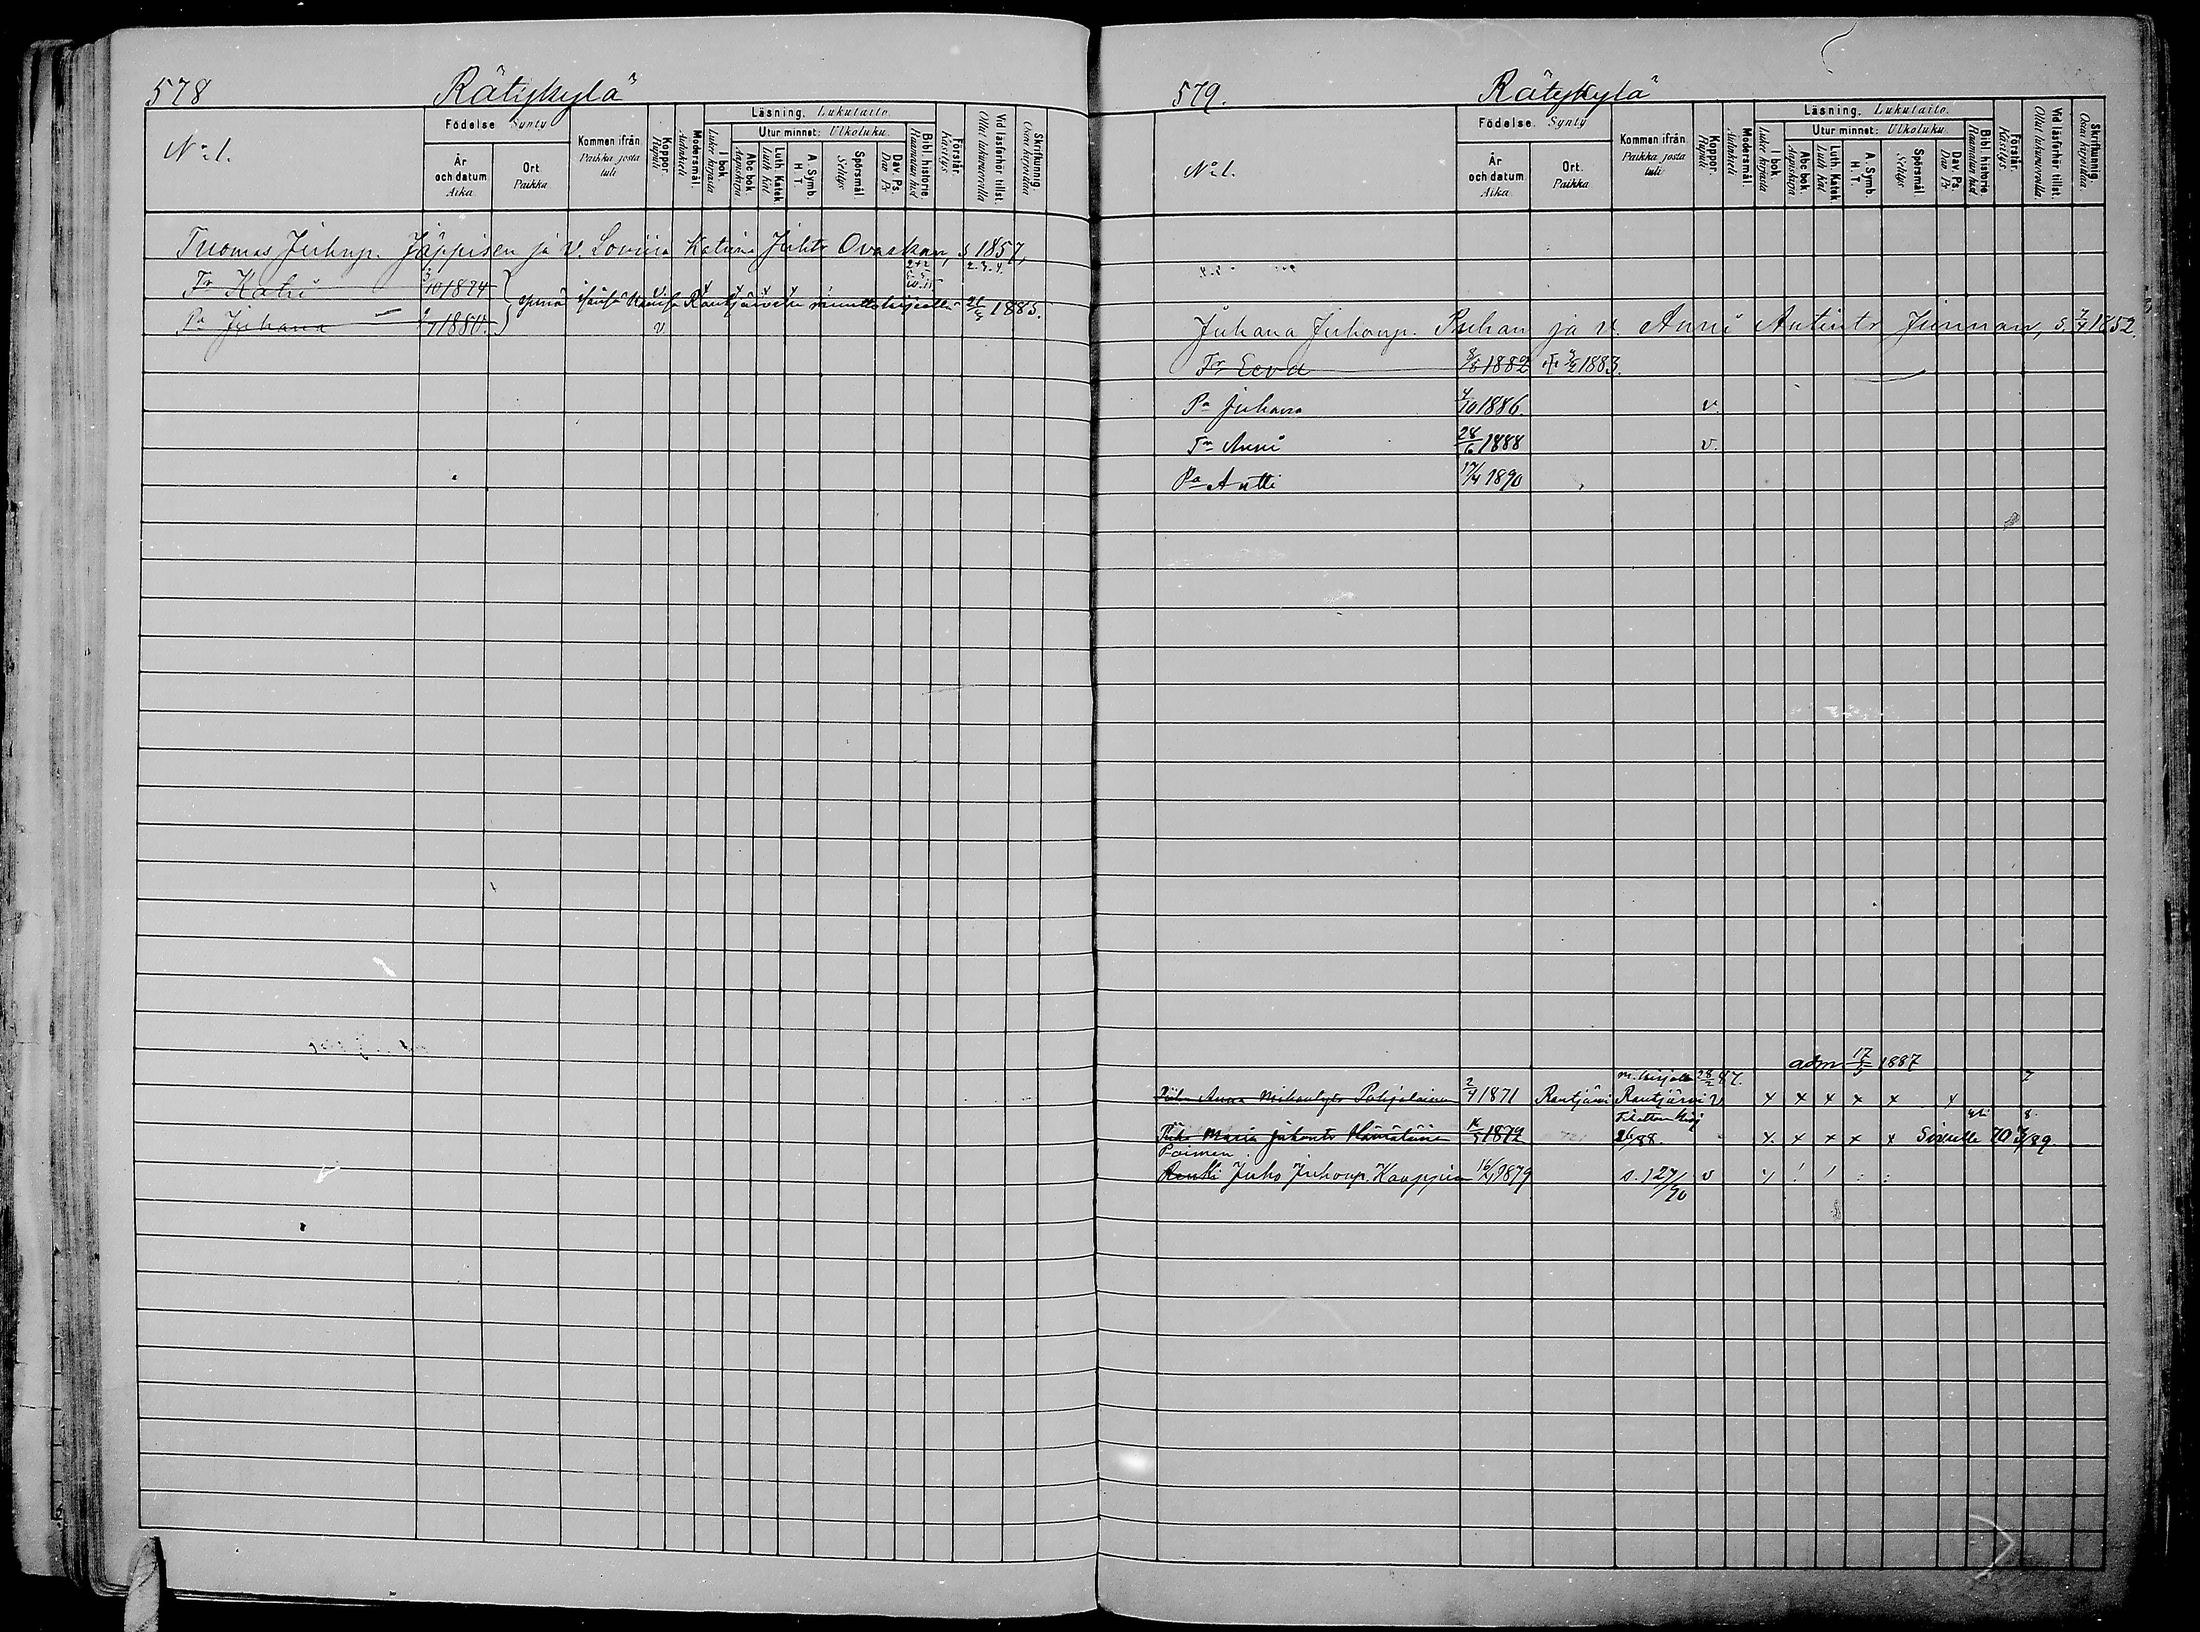 578 Rätykylä
No 1.
Födelse Synty
År och datum Aika
Ort Paikka
Kommen ifrån Paikka josta tuli
Koppor. Rupuli
Modersmål. Äidinkieli
Läsning. Lukutaito.
I bok Lukee kirjasta
Utur minnet: Ulkoluku.
Abc bok Aapiskirja
Luth. Katek. Luth Kat
A. Symb. H. T.
Spörsmål. Selitys
Dav. Ps. Dav Ps
Bibl historie. Raamatun hist
Förstår. Käsitys
Vid läsförhör tillst. Ollut lukuvuorolla
Skrifkunnig. Osaa kirjoittaa
Tuomas Juhonp. Jäppisen ja V. Loviisa Katrina Juhtr Ovaskan, s. 1857,
2. 3. 4.
Tr Katri 3/10 1874
isänsä kanssa Rautjärvelle muuttokirjalla 1885.
Pa Juhana 1880. v
579. Rätykylä
No 1.
Födelse. Synty
År och datum Aika
Ort. Paikka
Kommen ifrån Paikka josta tuli
Koppor. Rupuli
Modersmål. Äidinkieli
Läsning. Lukutaito.
I bok Lukee kirjasta
Utur minnet: Ulkoluku
Abc bok. Aapiskirja
Luth. Katek Luth Kat
A. Symb. H. T.
Spörsmål. Selitys
Dav. Ps Dav Ps
Bibl historie. Raamatun hist
Förstår. Käsitys
Vid läsförhör tillst. Ollut lukuvuorolla.
Skrifkunnig. Osaa kirjoittaa.
Juhana Juhonp. Puhan ja V. Anni Antintr Junnan, s. 7/4 1852.
Tr Eeva 8/8 1882 + 3/2 1883.
Pa Juhana 4/10 1886 v.
Tr Anni 28/6 1888 v.
Pa Antti 17/4 1890
adm 17/5 1887
m. kirjalla 28/2 87. 7
Piika Anna Mikontytr Pohjolainen 2/4 1871 Rautjärvi Rautjärvi v x x x x x x
8
Piika Maria Juhontr Hämäläinen 1872 26/88. x x x x x 70 89
Paimen
Renki Juho Juhonp. Kauppinen 16/11 1879 s. 127/90 v